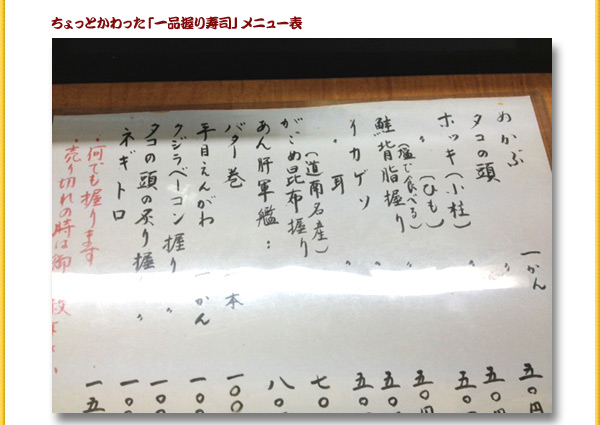 ちょっとかわった「一品握り寿司」メニュー表
めかぶ 一かん 五〇円
タコの頭 〃 五〇円
ホッキ(小柱) 〃 五〇
〃(ひも) 〃 五〇円
鮭背脂握り(塩で食べる) 〃 五〇
イカゲソ 〃 五〇
〃 耳 〃
がごめ昆布握り(道南名産) 七〇
あん肝軍艦: 八〇
バター巻 一本 一〇〇
平目えんがわ 一かん 一〇〇
クジラベーコン握り 〃
タコの頭の炙り握り 〃 一〇〇
ネギトロ 一五
・何でも握ります
・売り切れの時は御